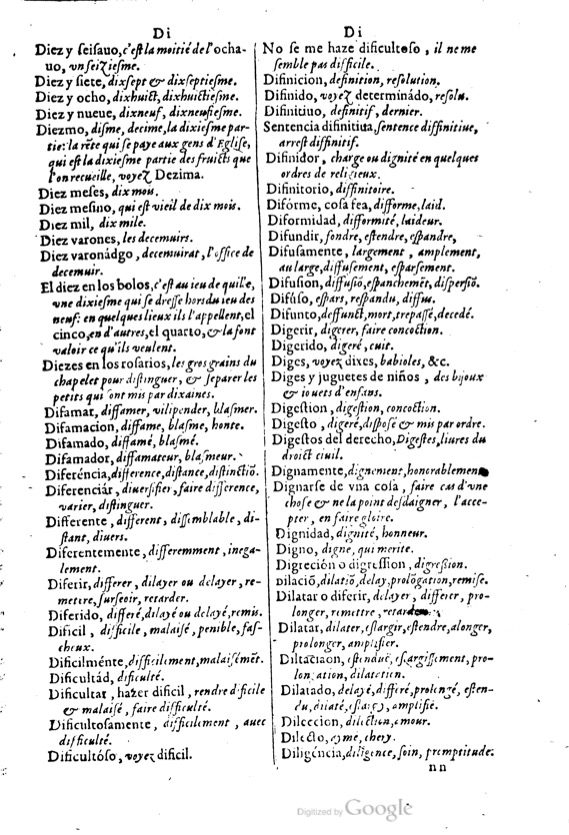 Di
Diez y ſeiſauo, c'eſt la moitié de l'ocha-
uo, vn ſeizieſme.
Diez y ſiete, dixſept & dixſeptieſme.
Diez y ocho, dixhuict, dixhuictieſme.
Diez y nueue, dixneuf, dixneufieſme.
Diezmo, diſme, decime, la dixieſme par-
tie: la rēte qui ſe paye aux gens d'Egliſe,
qui eſt la dixieſme partie des fruicts que
l'on recueille, voyez Dezima.
Diez meſes, dix mois.
Diez meſino, qui eſt vieil de dix mois.
Diez mil, dix mile.
Diez varones, les decemuirs.
Diez varonádgo, decemuirat, l'office de
decemuir.
El diez en los bolos, c'eſt au ieu de quille,
vne dixieſme qui ſe dreſſe hors du ieu des
neuf: en quelques lieux ils l'appellent, el
cinco, en d'autres, el quarto, & la font
valoir ce qu'ils veulent.
Diezes en los roſarios, les gros grains du
chapelet pour diſtinguer, & ſeparer les
petits qui ſont mis par dixaines.
Difamar, diffamer, vilipender, blaſmer.
Difamacion, diffame, blaſme, honte.
Difamado, diffamé, blaſmé.
Difamador, diffamateur, blaſmeur.
Diferéncia, difference, diſtance, diſtinctiō.
Diferenciár, diuerſifier, faire difference,
varier, diſtinguer.
Differente, different, diſſemblable, di-
ſtant, diuers.
Diferentemente, differemment, inega-
lement.
Diferir, differer, dilayer ou delayer, re-
mettre, ſurſeoir, retarder.
Diferido, differé, dilayé ou delayé, remis.
Dificil, difficile, malaiſé, penible, faſ-
cheux.
Dificilménte, difficilement, malaiſémēt.
Dificultád, difficulté.
Dificultar, hazer dificil, rendre difficile
& malaiſé, faire difficulté.
Dificultoſamente, difficilement, auec
difficulté.
Dificultóſo, voyez dificil.
Di
No ſe me haze dificultoſo, il ne me
ſemble pas difficile.
Difinicion, definition, reſolution.
Difinido, voyez determinádo, reſolu.
Difinitiuo, definitif, dernier.
Sentencia difinitiua, ſentence diffinitiue,
arreſt diffinitif.
Difinidor, charge ou dignité en quelques
ordres de religieux.
Difinitorio, diffinitoire.
Difórme, coſa fea, difforme, laid.
Diformidad, difformité, laideur.
Difundir, fondre, eſtendre, eſpandre,
Difuſamente, largement, amplement,
au large, diffuſement, eſparſement.
Difuſion, diffuſiō, eſpanchemēt, diſperſiō.
Difúſo, eſpars, reſpandu, diffus.
Difunto, deffunct, mort, treſpaſſé, decedé.
Digerir, digerer, faire concoction.
Digerido, digeré, cuit.
Diges, voyez dixes, babioles, &c.
Diges y juguetes de niños, des bijoux
& iouets d'enfans.
Digeſtion, digeſtion, concoction.
Digeſto, digeré, diſpoſé & mis par ordre.
Digeſtos del derecho, Digeſtes, liures du
droict ciuil.
Dignamente, dignement, honorablement
Dignarſe de vna coſa, faire cas d'vne
choſe & ne la point deſdaigner, l'acce-
pter, en faire gloire.
Dignidad, dignité, honneur.
Digno, digne, qui merite.
Digreción o digreſſion, digreſſion.
Dilació, dilatiō, delay, prologation, remiſe.
Dilatar o diferir, delayer, differer, pro-
longer, remettre, retarder.
Dilatar, dilater, eſlargir, eſtendre, alonger,
prolonger, amplifier.
Diltaciaon, eſtenduë, eſlargiſſement, pro-
longation, dilatation.
Dilatado, delayé, differé, prolongé, eſten-
du, dilaté, eſlargi, amplifié.
Dileccion, dilection, amour.
Dilecto, aymé, chery.
Diligéncia, diligence, ſoin, promptitude.
nn
Digitized by Google